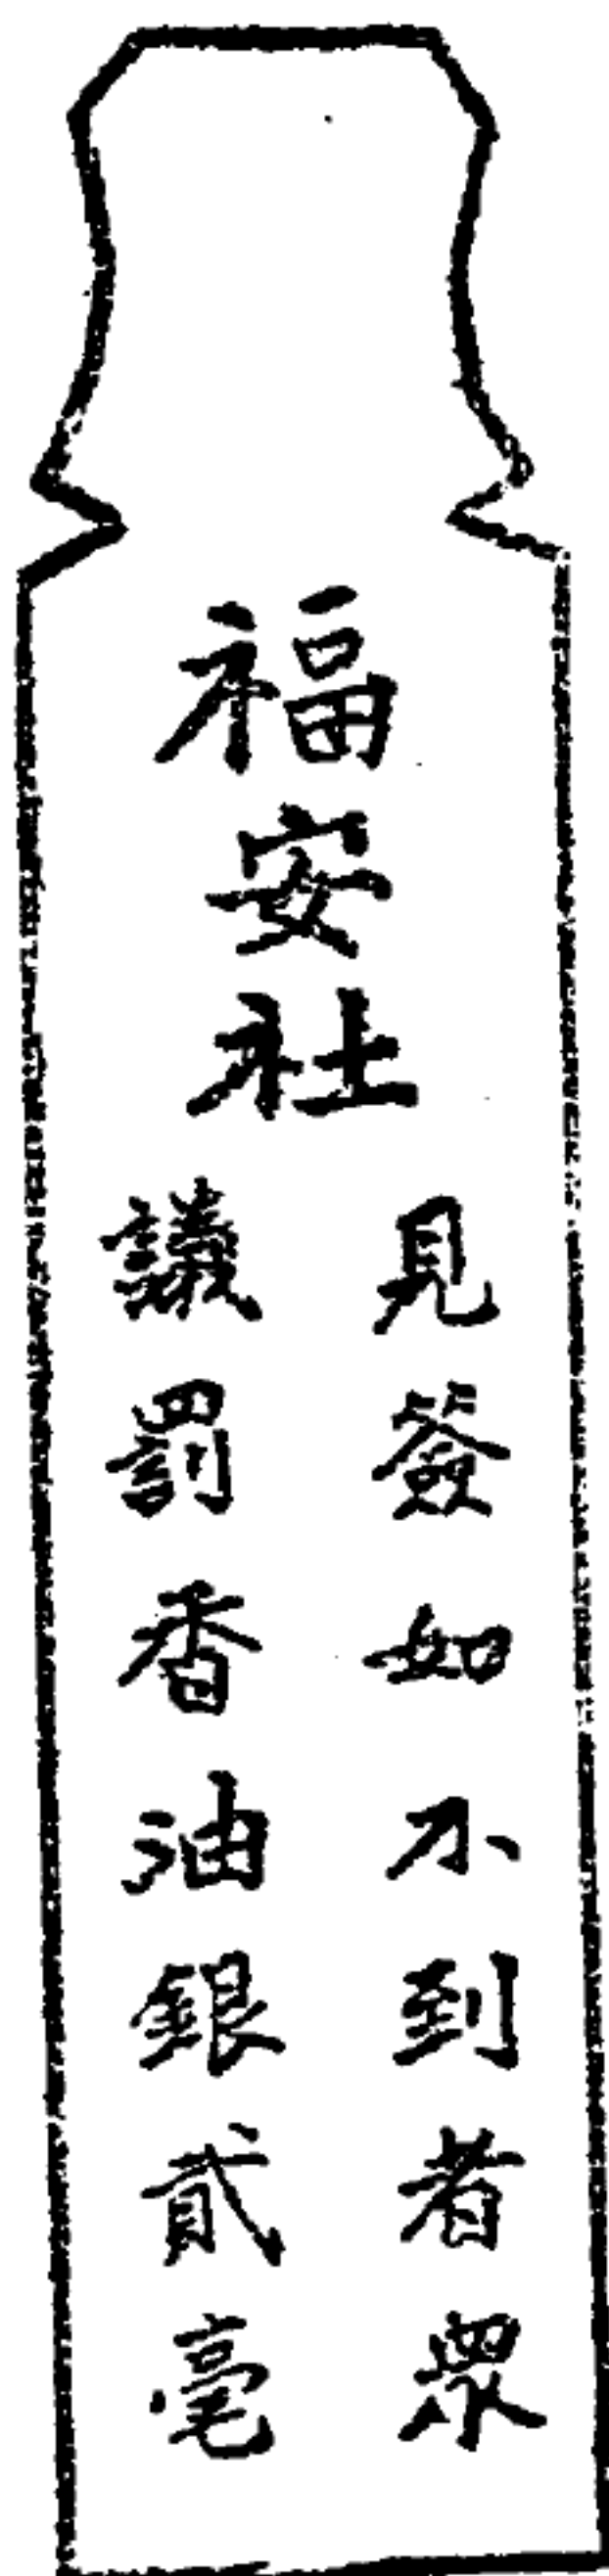 福安社
見簽如不到者衆
議罰香油銀貳毫